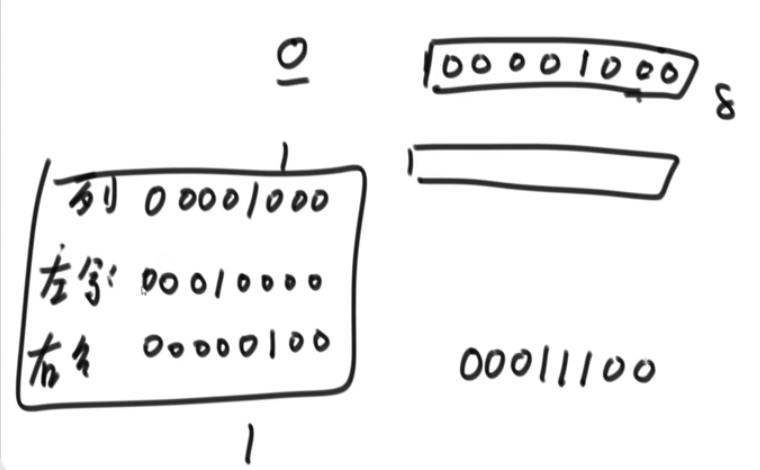 0
00001000
8
1
列 00001000
左 00010000
右 00000100
00011100
1